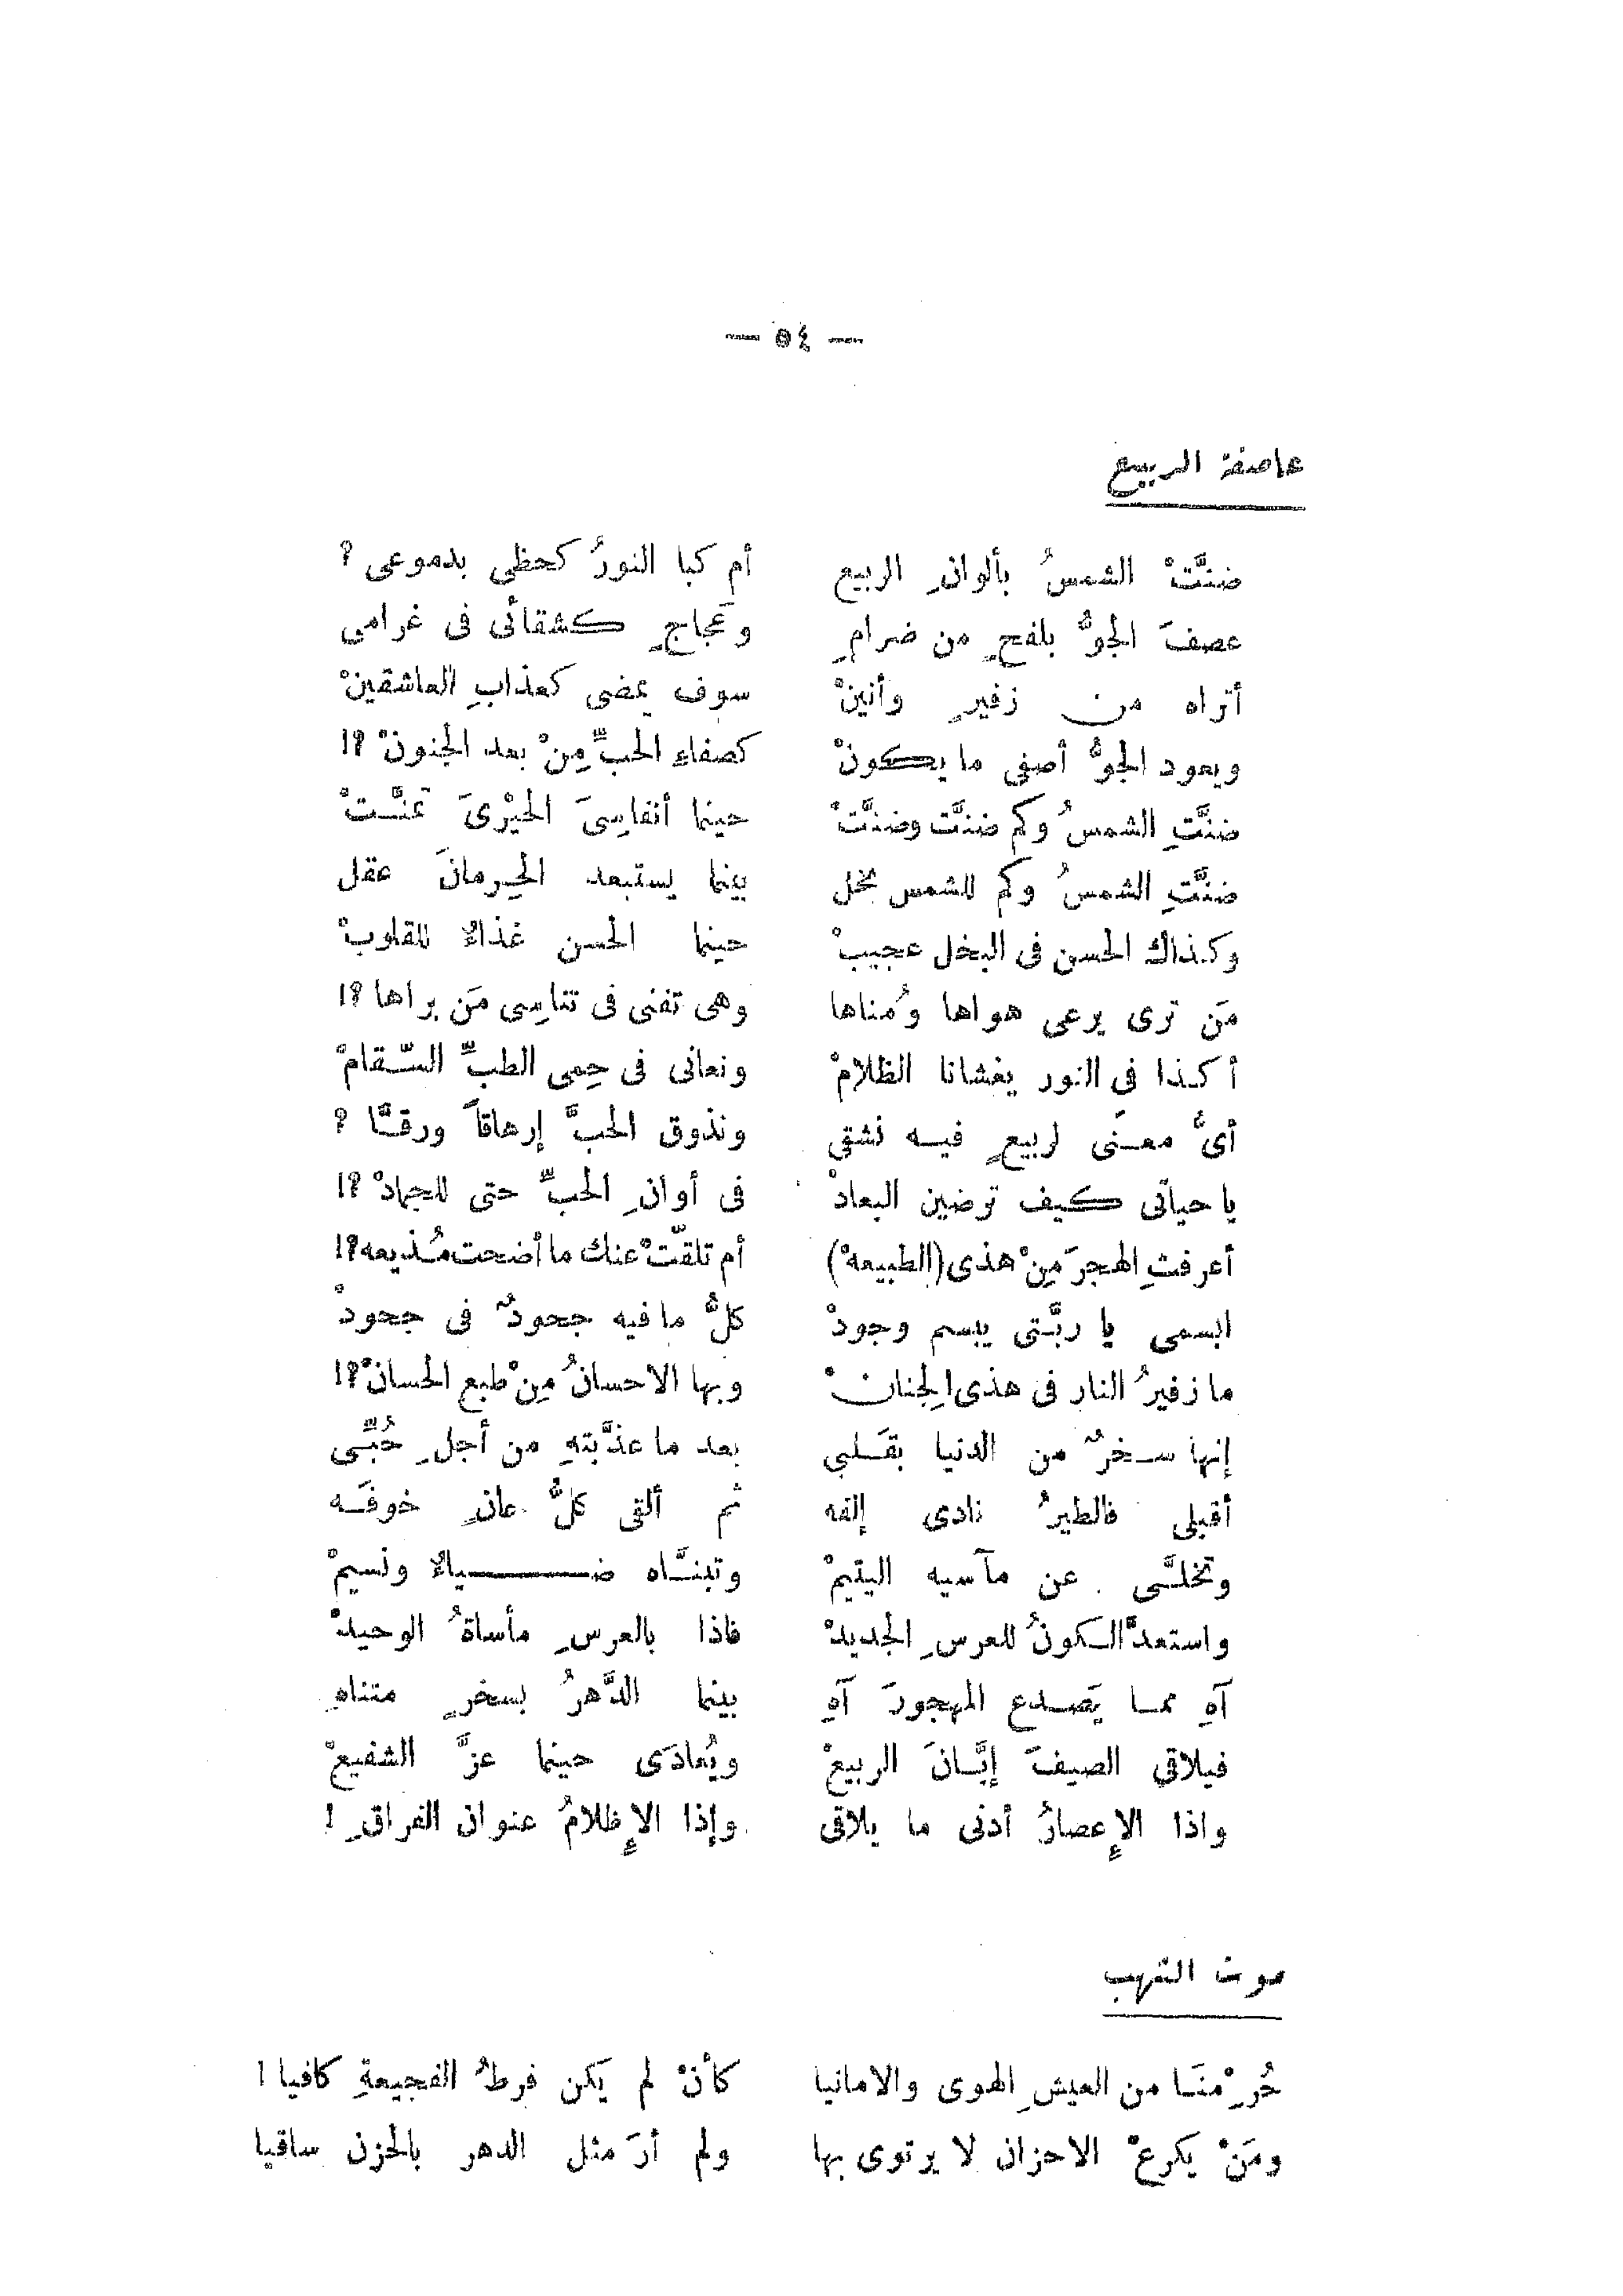 — ٥٤ —
عاصفة الربيع
ضنَّتْ الشمسُ بألوانِ الربيع أم كبا النورُ كحظى بدموعى ؟
عصفَ الجوُّ بلفحٍ من ضرامِ وعَجاجٍ كشقائى فى غرامى
أتراه من زفيرٍ وأنينْ سوف يمضى كعذابِ العاشقينْ
ويعود الجوُّ أصفى ما يكونْ كصفاءِ الحبِّ مِنْ بعد الجنونْ ؟!
ضنَّتِ الشمسُ وكم ضنَّت وضنَّتْ حينما أنفاسِىَ الحيْرىَ تمنَّتْ
ضنَّتِ الشمسُ وكم للشمس بخل بينما يستبعد الحِرمانَ عقل
وكذاك الحسن فى البخل عجيبْ حينما الحسن غذاءٌ للقلوبْ
مَن ترى يرعى هواها ومُناها وهى تفنى فى تناسِى مَن براها ؟!
أكذا فى النور يغشانا الظلامْ ونعانى فى حِمى الطبِّ السّقامْ
أىُّ معنَى لربيعٍ فيه نشقى ونذوق الحبَّ إرهاقاً ورقَّا ؟
يا حياتى كيف ترضين البعادْ فى أوانِ الحبِّ حتى للجمادْ ؟!
أعرفتِ الهجرَ مِنْ هذى (الطبيعهْ) أم تلقّتْ عنك ما أضحت مُذيعه ؟!
ابسمى يا ربَّتى يبسم وجودْ كلُّ ما فيه جحودٌ فى جحودْ
ما زفيرُ النار فى هذى الجِنانْ وبها الاحسانُ مِنْ طبع الحسانْ ؟!
إنها سخرٌ من الدنيا بقَلبى بعد ما عذَّبتهِ من أجلِ حُبِّى
أقبلى فالطيرُ نادى إلفه ثم ألقى كلُّ عانٍ خوفَه
وتخلَّى عن مآسيه اليتيمْ وتبنَّاه ضياءٌ ونسيمْ
واستعدَّ الكونُ للعرسِ الجديدْ فاذا بالعرسِ مأساةُ الوحيدْ
آهِ مما يَصدع المهجورَ آهِ بينما الدَّهرُ بسخرٍ متناهِ
فيلاقى الصيفَ إبَّانَ الربيعْ ويُعادَى حينما عزَّ الشفيعْ
واذا الإعصارُ أدنى ما يلاقى وإذا الإظلامُ عنوان الفراقِ !
موت اللهب
حُرِمْنَا من العيشِ الهوى والامانيا كأنْ لم يَكن فرطُ الفجيعةِ كافيا !
ومَنْ يكرعْ الاحزان لا يرتوى بها ولم أرَ مثل الدهر بالحزن ساقيا